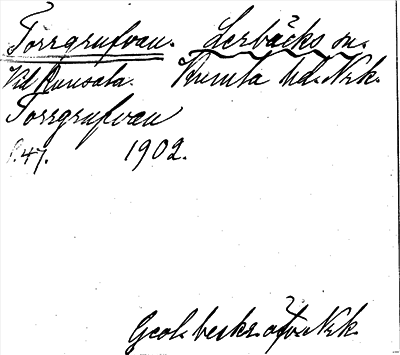 Torrgrufvan. Lerbäcks sn.
Vid Runsala. Kumla hd. Nrk.
Torrgrufvan
s. 47. 1902.
Geol. beskr. öfv. Nrk.